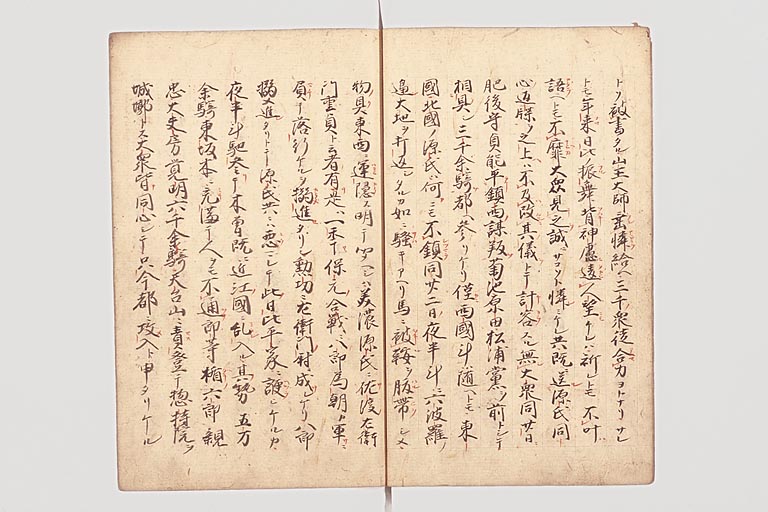 トソ被書タル山王大師ニ憐給ヘ三千衆徒合力ヲトナリサレ
トモ年来日比ノ振舞背神慮違人望ケレハ祈レトモ不叶
語ヘトモ不靡大衆見之誠ニサコソト憐ミケレ共既送源氏同
心返牒ヲ之上ハ不及改其儀トテ計容スル無大衆同廿日
肥後守貞能平鎮西謀叛菊池原田松浦黨ヲ前トシテ
相具シ三千余騎都ヘ参リケリ僅西國斗随トモ東
國北國ノ源氏何ニモ不鎮同廿二日夜半斗ニ六波羅ノ
邉大地ヲ打返シタルカ如ニ騒キアヘリ馬ニ被鞍ヲ腹帯シメ
物具東西ニ運隠ス明テ後美濃源氏ニ佐渡右衛
門重貞ト云者有是ハ一年保元合戦ニ八郎為朝ト軍
負テ落行ケルヲ搦進タリシ勲功ニ右衛門尉成シケリ八郎
搦進タリトテ源氏共ニハ悪マレテ此日比平家ヲ諛ヒケルカ
夜半斗馳参テ木曽既ニ近江國ニ乱入ル其勢五万
余騎東坂本ニ充満テ人ヲモ不通郎等楯六郎親
忠大夫房覚明六千余騎天台山ニ責登テ惣持院ヲ
城郭トス大衆皆同心シテ只今都ヘ攻入ト申タリケル